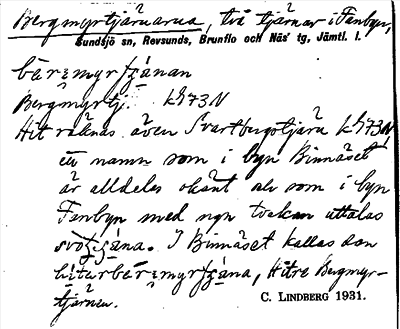 Bergmyrtjärnarna, två tjärnar i Fanbyn,
Sundsjö sn, Revsunds, Brunflo och Näs' tg, Jämtl. l.
Bergmyrtj. k473N
Hit räknas även Svartbergstjärn k473N
ett namn som i byn Binnäset
är alldeles okänt och som i byn
Fanbyn med ngn tvekan uttalas
I Binnäset kallas den
Hitre Bergmyr-
tjärnen.
C. LINDBERG 1931.